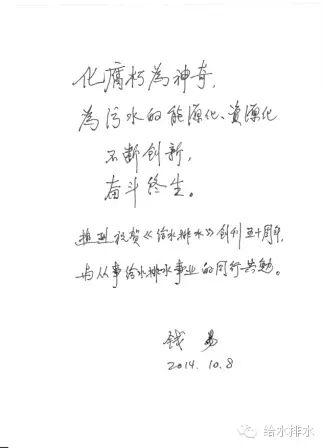 化腐朽為神奇，
為污水的能源化、资源化
不断创新，
奋斗终生。
祝贺《给水排水》创刊五十周年，
与从事给水排水事业的同行共勉。
钱易
2014.10.8
给水排水